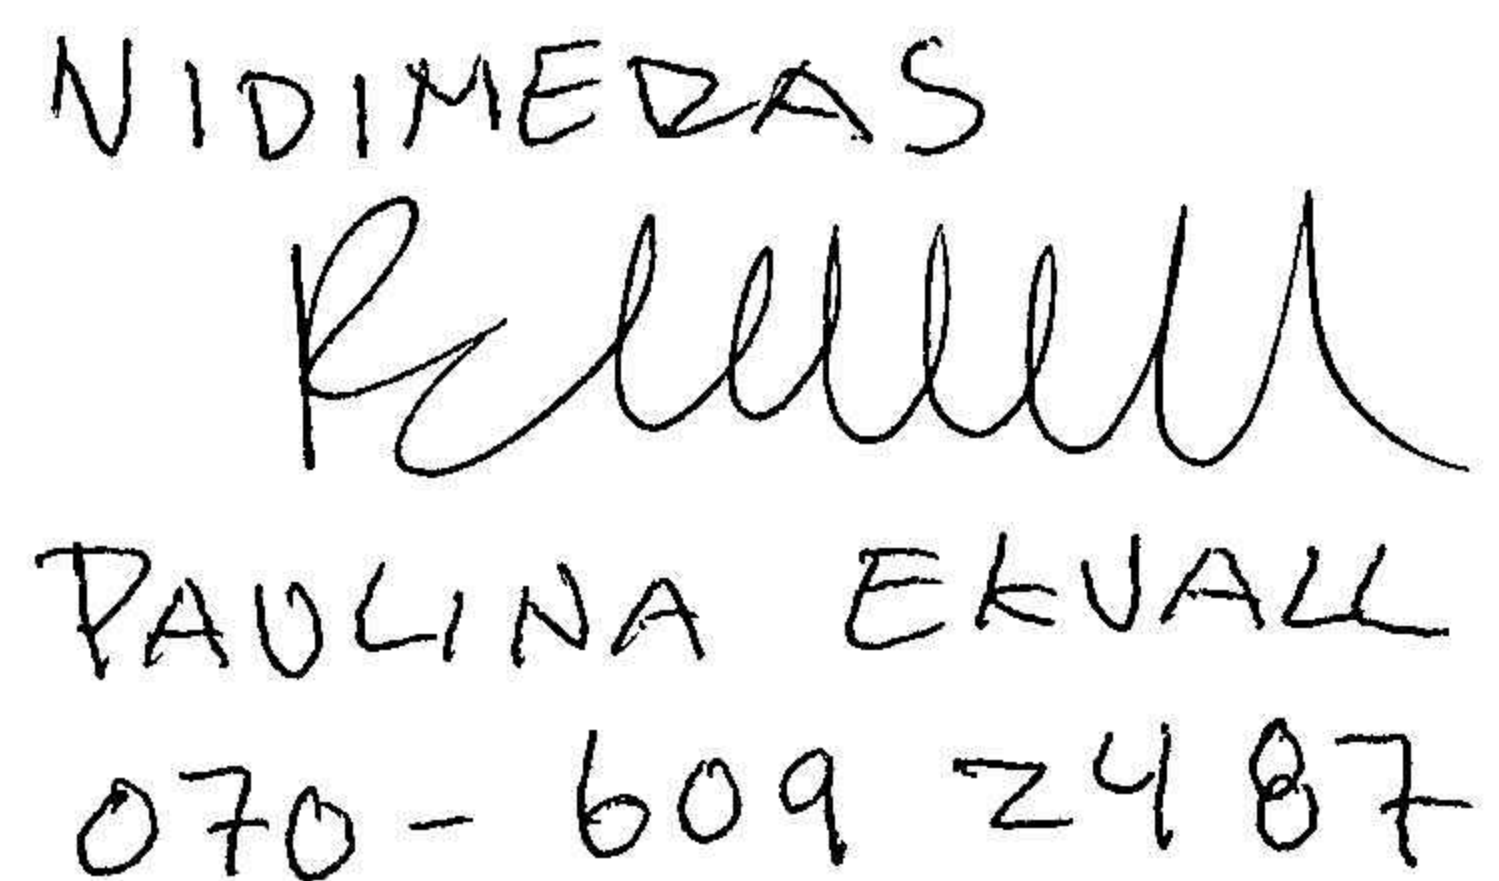 VIDIMERAS
PAULINA EKVALL
070-609 2487